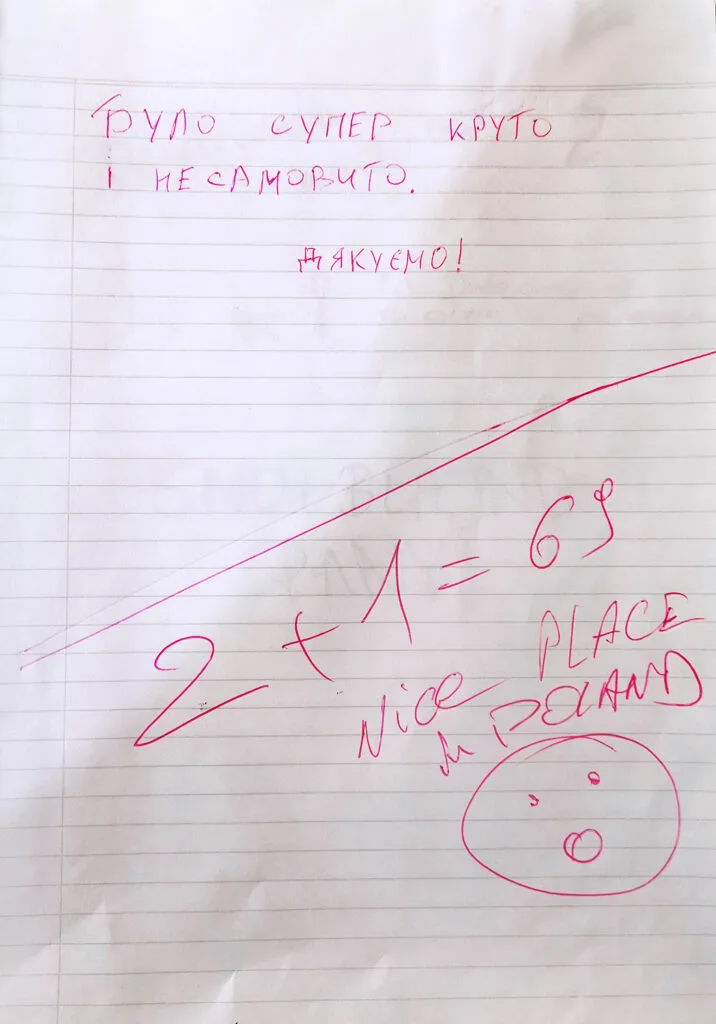 БУЛО СУПЕР КРУТО
І НЕСАМОВИТО.
ДЯКУЄМО!
2 + 1 = 69
NICE PLACE
in POLAND